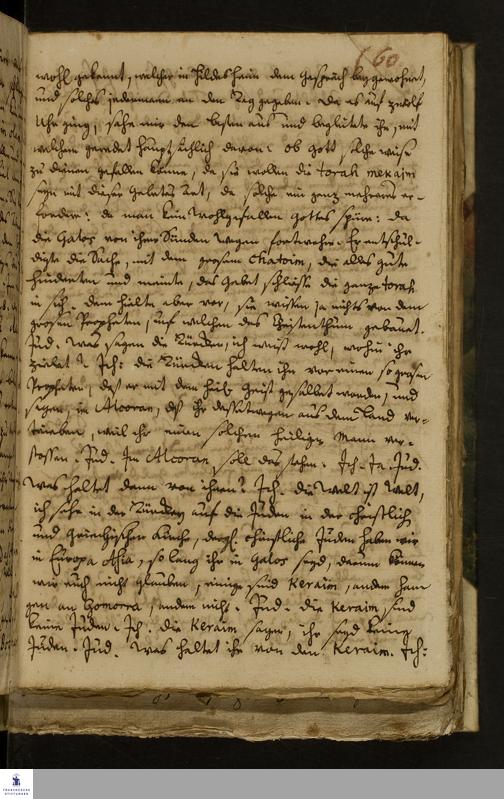 160
wohl gekennt, welcher in Hildesheim dem Gespräch beÿgewohnet,
und solches jedermann an den Tag gegeben. Da es auf zwölf
Uhr ging, sahe mir den besten aus und begleitete ihn, mit
welchem geredet hauptsächlich davon: ob Gott solche weise
zu dienen gefallen könne, da sie wollen die torah mekajm
seyn mit dieser Gebeter art, da solche ein ganz mehreres er-
fordere: da man kein Wohlgefallen Gottes spüre: da
die Galos von ihrer Sünden wegen fortwehre. Er entschul-
digte die Sache, mit dem grosen Chatoim, die alles gute
hinderten und meinte, das Gebet schliesse die ganze torah
in sich. dem hielte aber vor, sie wissen ja nichts von dem
grosen Propheten, auf welchen das Christenthum gebauet.
Jud. Was sagen die Türcken, ich weiß wohl, wohin ihr
zielet? Ich: die Türcken halten ihn vor einen so grosen
Propheten, daß er mit dem heil. Geist gesalbet worden, und
sagen, im Alcoran, daß ihr deßwegen aus dem Land ver-
trieben, weil ihr einen solchen heiligen Mann ver-
stossen. Jud. Im Alcoran soll das stehn? Ich. Ja. Jud.
Was haltet denn von ihnen? Ich. die Welt ist Welt,
ich sehe in der Türckey auf die Juden in der christlich
und Griechischen Kirche, dergl. christliche Juden haben wir
in Europa Asia, so lang ihr in Galos seyd, darum können
wir auch nicht glauben, einige sind Keraim, andere han-
gen an Gomorra, andere nicht. Jud. die Keraim sind
keine Juden. Ich. die Keraim sagen, ihr seyd keine
Juden. Jud. Was haltet ihr von den Keraim. Ich:
FRANCKESCHE
STIFTUNGEN